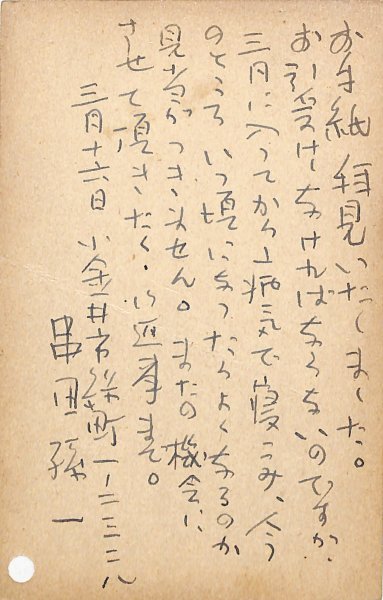 お手紙拝見いたしました。
お引受けしなければならないのですが、
三月に入ってから病気で寝こみ、今
のところいつ頃になったらよくなるのか
見当がつきません。またの機会に
させて頂きたく、御返事まで。
三月十六日 小金井市緑町一ー二三二八
串田孫一